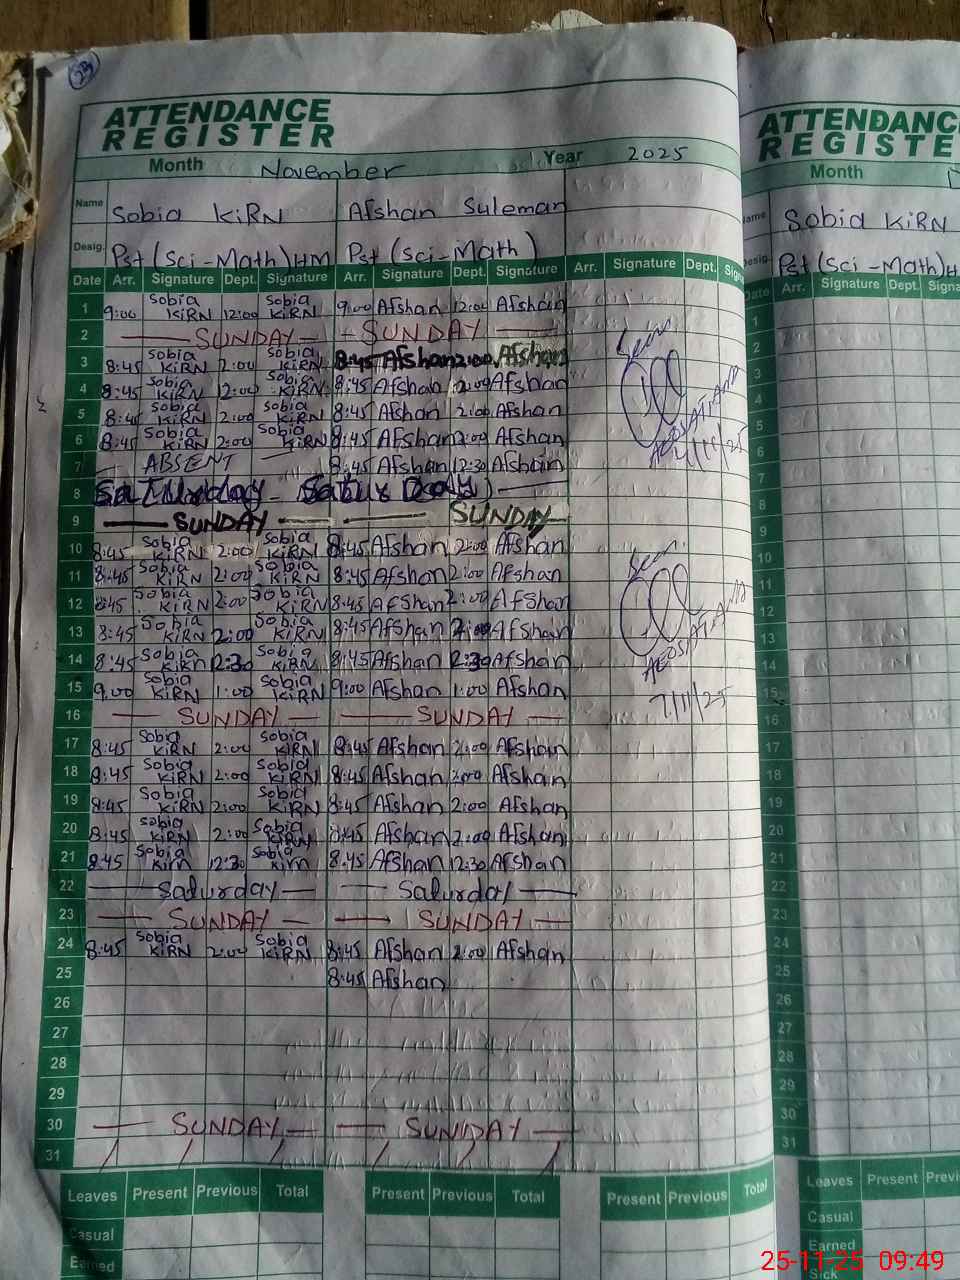 23
ATTENDANCE
REGISTER
Month November Year 2025
Name Sobia KiRN Afshan Suleman
Desig. Pst (Sci-Math) HM Pst (Sci-Math)
Date Arr. Signature Dept. Signature Arr. Signature Dept. Signature Arr. Signature Dept. Sign
1 9:00 Sobia KiRN 12:00 Sobia KiRN 9:00 Afshan 12:00 Afshan
2 SUNDAY SUNDAY
3 8:45 Sobia KiRN 2:00 Sobia KiRN 8:45 Afshan 2:00 Afshan
4 8:45 Sobia KiRN 2:00 Sobia KiRN 8:45 Afshan 2:00 Afshan
5 8:45 Sobia KiRN 2:00 Sobia KiRN 8:45 Afshan 2:00 Afshan
6 8:45 Sobia KiRN 2:00 Sobia KiRN 8:45 Afshan 2:00 Afshan
7 ABSENT 8:45 Afshan 12:30 Afshan
8 Saturday Saturday
9 SUNDAY SUNDAY
10 8:45 Sobia KiRN 2:00 Sobia KiRN 8:45 Afshan 2:00 Afshan
11 8:45 Sobia KiRN 2:00 Sobia KiRN 8:45 Afshan 2:00 Afshan
12 8:45 Sobia KiRN 2:00 Sobia KiRN 8:45 Afshan 2:00 Afshan
13 8:45 Sobia KiRN 2:00 Sobia KiRN 8:45 Afshan 2:00 Afshan
14 8:45 Sobia KiRn 12:30 Sobia KiRN 8:45 Afshan 2:30 Afshan
15 9:00 Sobia KiRN 1:00 Sobia KiRN 9:00 Afshan 1:00 Afshan
16 SUNDAY SUNDAY
17 8:45 Sobia KiRN 2:00 Sobia KiRN 8:45 Afshan 2:00 Afshan
18 8:45 Sobia KiRN 2:00 Sobia KiRN 8:45 Afshan 2:00 Afshan
19 8:45 Sobia KiRN 2:00 Sobia KiRN 8:45 Afshan 2:00 Afshan
20 8:45 Sobia KiRN 2:00 Sobia KiRN 8:45 Afshan 2:00 Afshan
21 8:45 Sobia Kirn 12:30 Sobia Kirn 8:45 Afshan 12:30 Afshan
22 Saturday Saturday
23 SUNDAY SUNDAY
24 8:45 Sobia KiRN 2:00 Sobia KiRN 8:45 Afshan 2:00 Afshan
25 8:45 Afshan
26
27
28
29
30 SUNDAY SUNDAY
31
Seen
Seen
7/11/25
Leaves Present Previous Total Present Previous Total Present Previous Total
Casual
Earned
ATTENDANC
REGISTE
Month
ame Sobia KiRN
esig. Pst (Sci-Math) H
Date Arr. Signature Dept. Signa
1
2
3
4
5
6
7
8
9
10
11
12
13
14
15
16
17
18
19
20
21
22
23
24
25
26
27
28
29
30
31
Leaves Present Previ
Casual
Earned
Sick
25-11-25 09:49